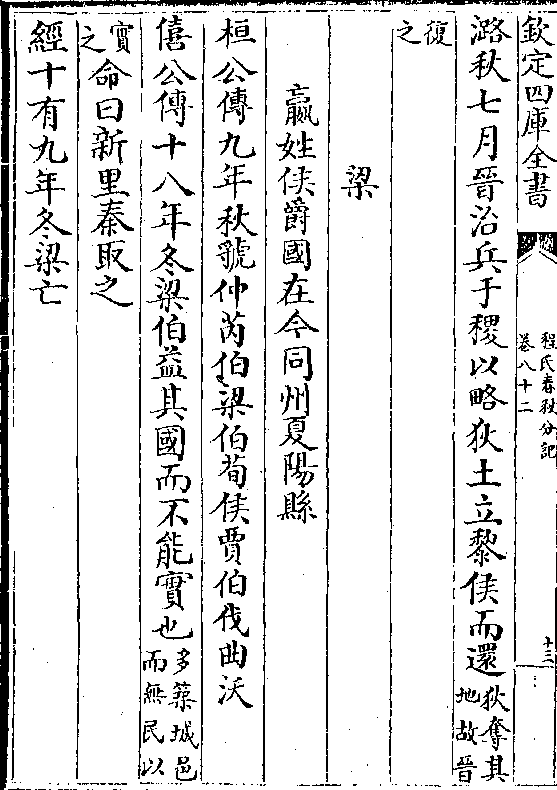 欽定四庫全書
程氏春秋分記
卷八十二
十三
潞秋七月晉治兵于稷以略狄土立黎侯而還狄奪其地故晉
復之
梁
嬴姓侯爵國在今同州夏陽縣
桓公傳九年秋虢仲芮伯梁伯荀侯賈伯伐曲沃
僖公傳十八年冬梁伯益其國而不能實也多築城邑而無民以
實之命曰新里秦取之
經十有九年冬梁亡